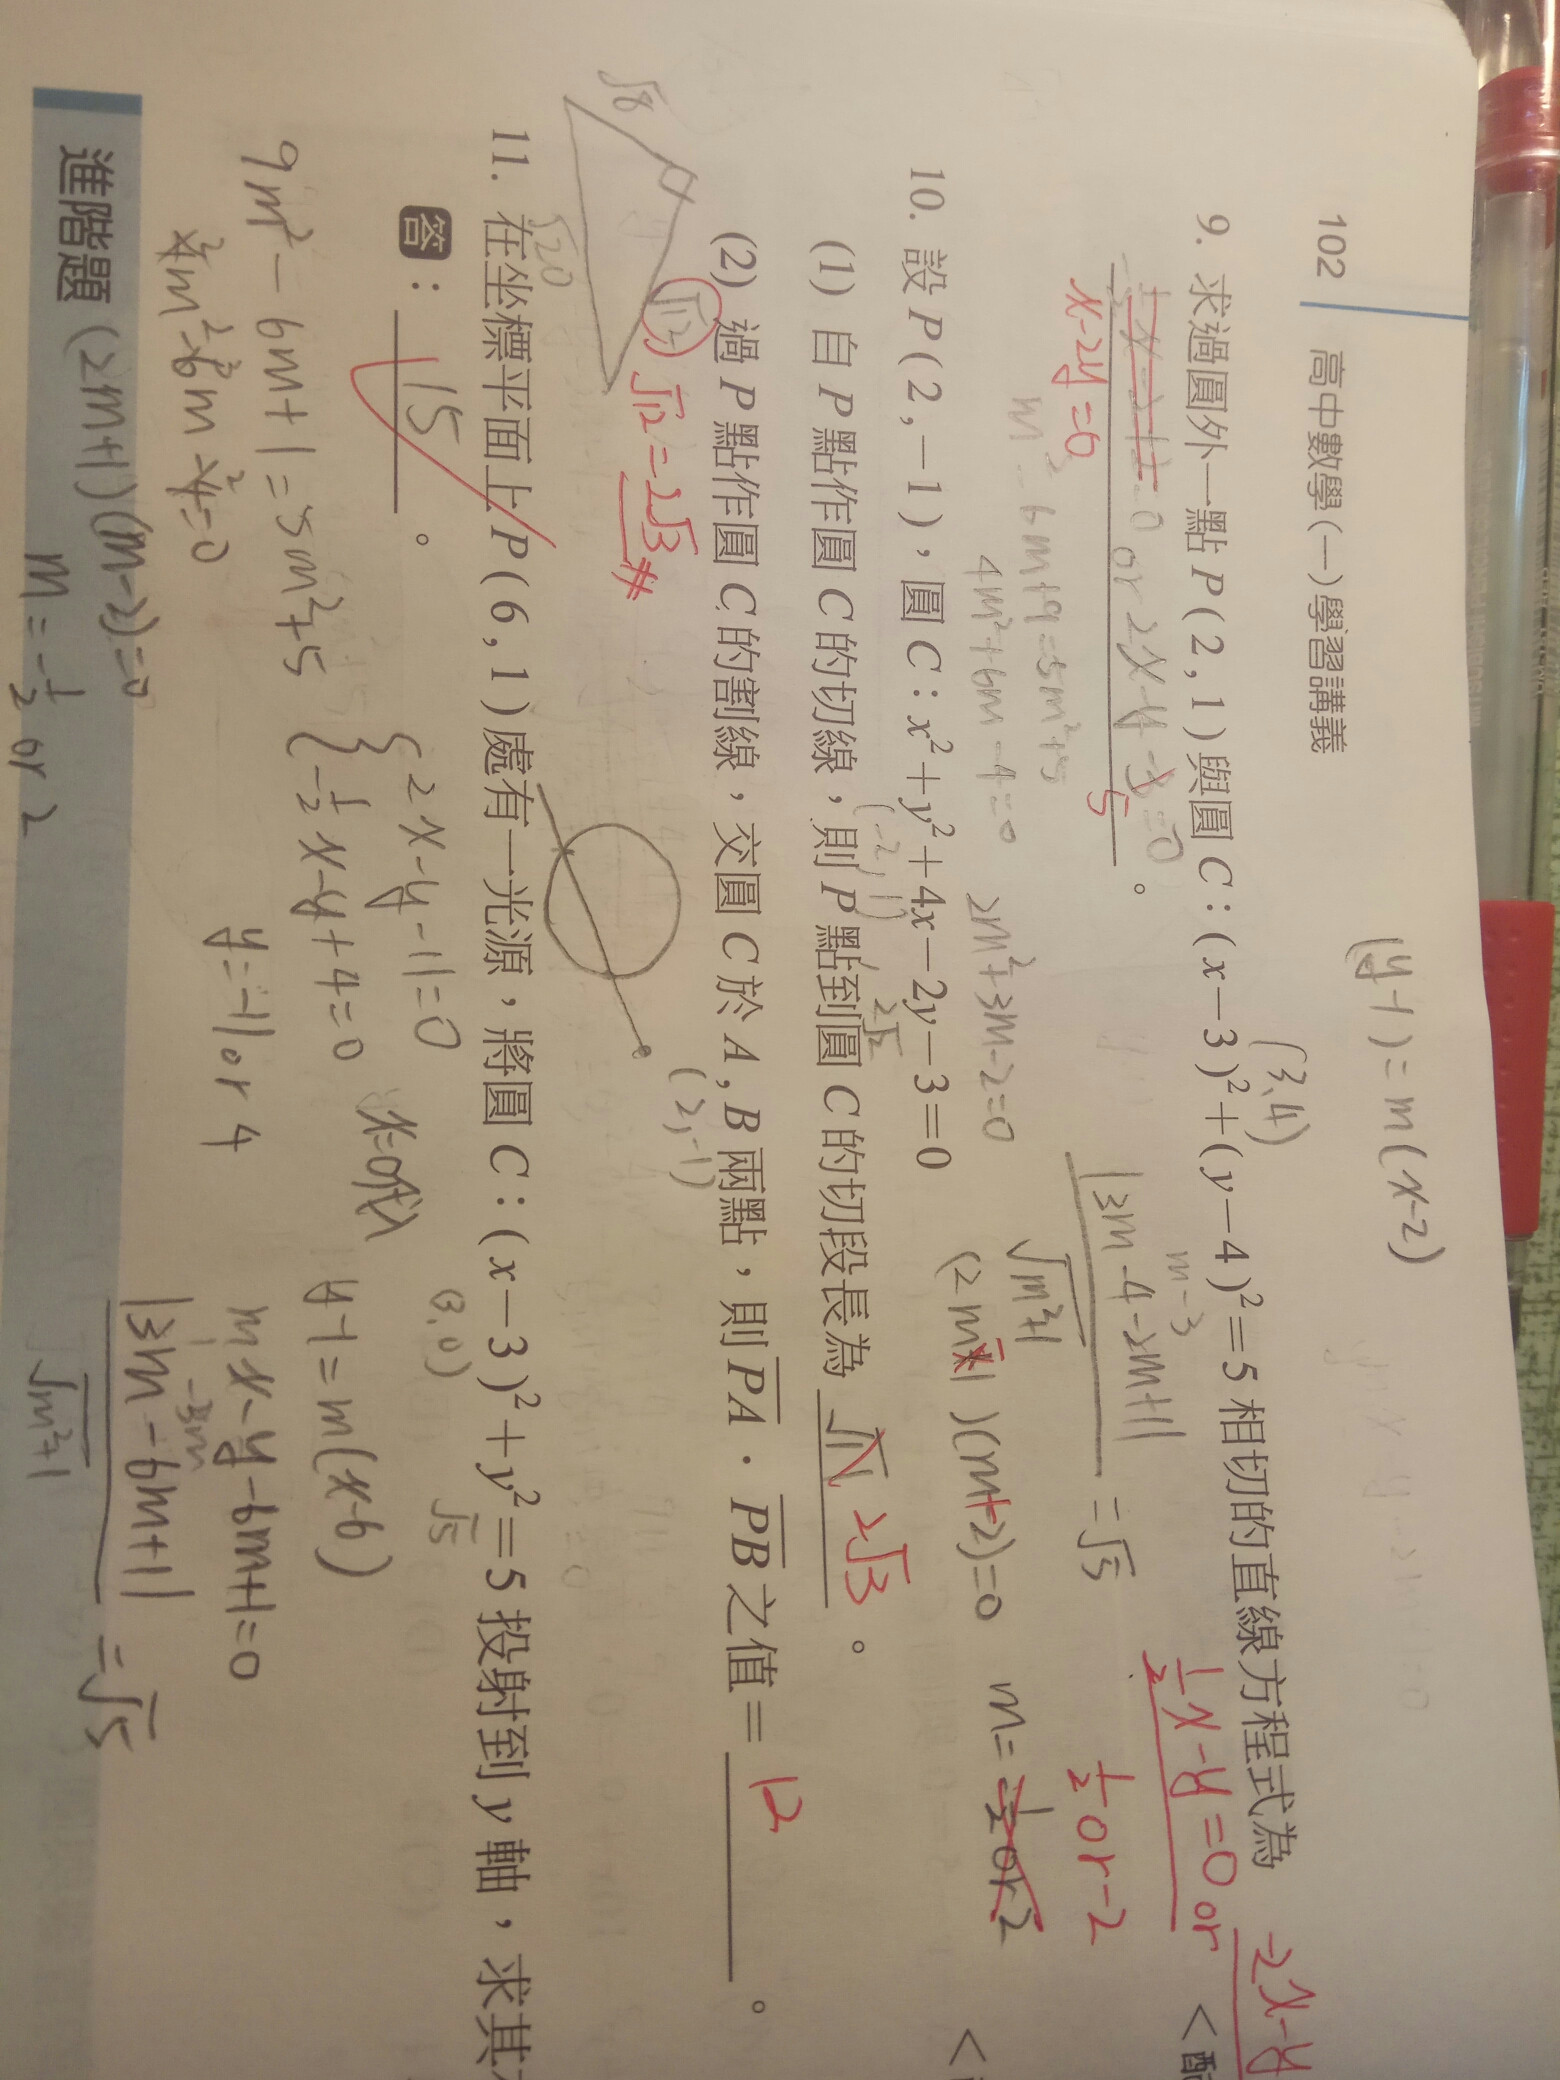 102 高中數學(一)學習講義
(y-1)=m(x-2)
9. 求過圓外一點 P(2,1)與圓 C:(x-3)²+(y-4)²=5 相切的直線方程式為
(3,4)
½x-y=0 or -2x-y
or 2x-y-5=0 。 <配
x-2y=0
m-3
|3m-4-2m+1|
√m²+1
=√5
½ or -2
m²-6m+9=5m²+5
4m²+6m-4=0
2m²+3m-2=0
(2m-1)(m+2)=0
m=-½ or 2
10. 設 P(2,-1),圓 C:x²+y²+4x-2y-3=0
(-2,1)
2√2
(1) 自 P 點作圓 C 的切線,則 P 點到圓 C 的切段長為 √12 2√3 。
(2) 過 P 點作圓 C 的割線,交圓 C 於 A,B 兩點,則 PA · PB 之值= 12 。
√8
√20
√12
√12=2√3 #
(2,-1)
11. 在坐標平面上 P(6,1)處有一光源,將圓 C:(x-3)²+y²=5 投射到 y 軸,求其
(3,0)
√5
答: 15 。
2x-y-11=0
-½x-y+4=0
x=0代入
y=-11 or 4
y-1=m(x-6)
mx-y-6m+1=0
-3m
|3m-6m+1|
√m²+1
=√5
9m²-6m+1=5m²+5
4m²-6m-4=0
(2m+1)(m-2)=0
m=-½ or 2
進階題